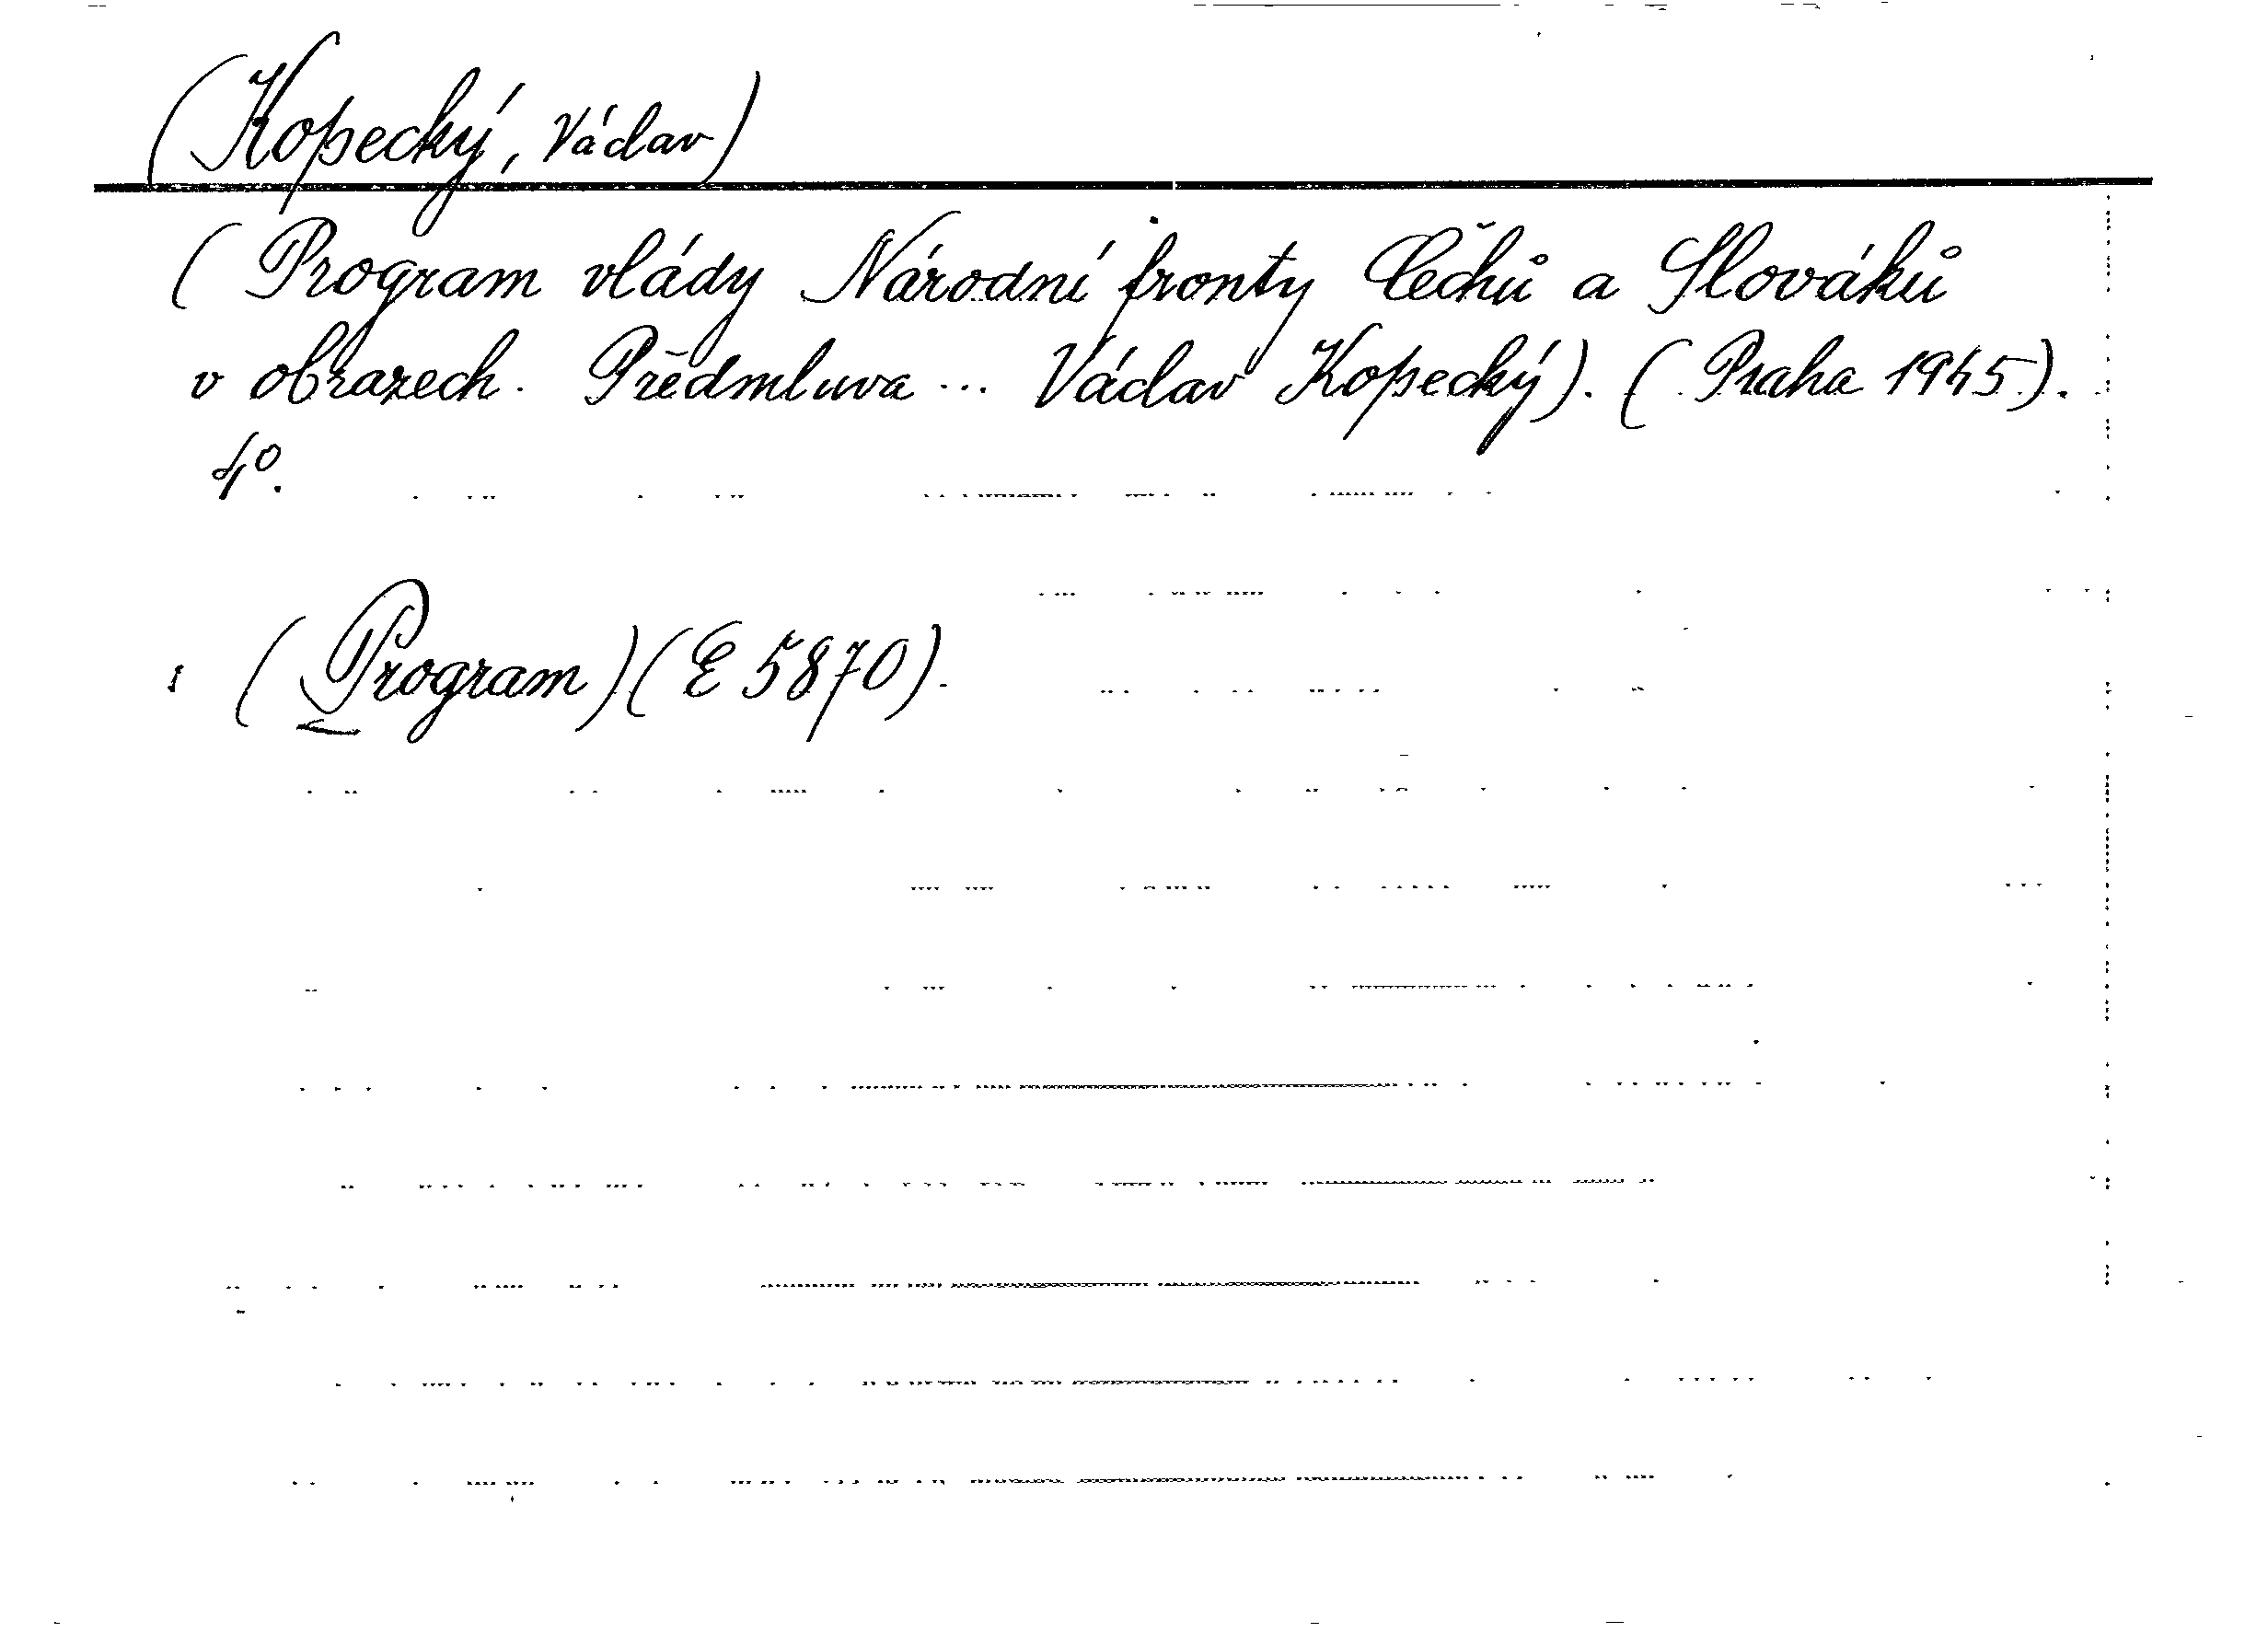 (Kopecký, Václav)
(Program vlády Národní fronty Čechů a Slováků
v obrazech. Předmluva... Václav Kopecký). (Praha 1945).
4°.
(Program)(E 5870).